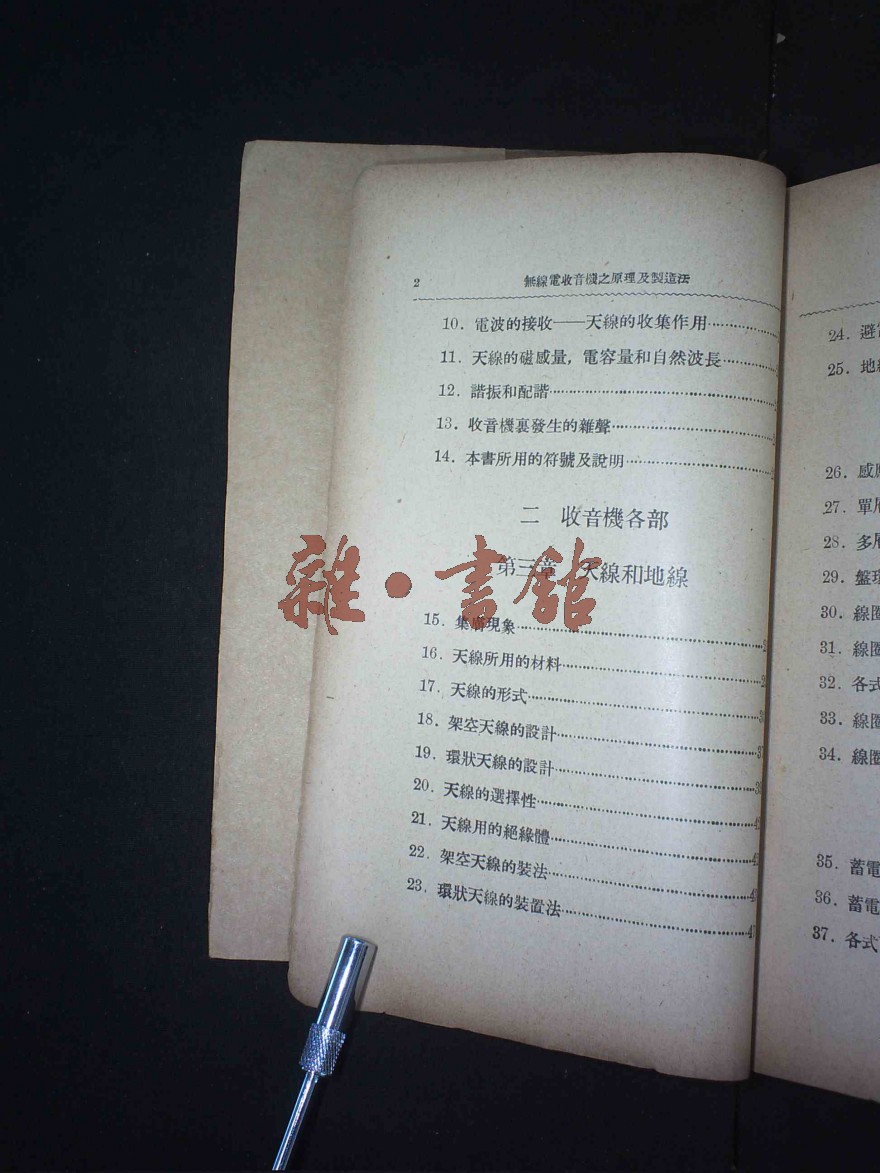 2 無線電收音機之原理及製造法
10. 電波的接收——天線的收集作用
11. 天線的磁感量，電容量和自然波長
12. 諧振和配諧
13. 收音機裏發生的雜聲
14. 本書所用的符號及說明
二 收音機各部
第三章 天線和地線
15. 集膚現象
16. 天線所用的材料
17. 天線的形式
18. 架空天線的設計
19. 環狀天線的設計
20. 天線的選擇性
21. 天線用的絕緣體
22. 架空天線的裝法
23. 環狀天線的裝置法
雜·書館
24. 避
25. 地
26. 感
27. 單
28. 多
29. 盤
30. 線圈
31. 線圈
32. 各式
33. 線圈
34. 線圈
35. 蓄電
36. 蓄電
37. 各式